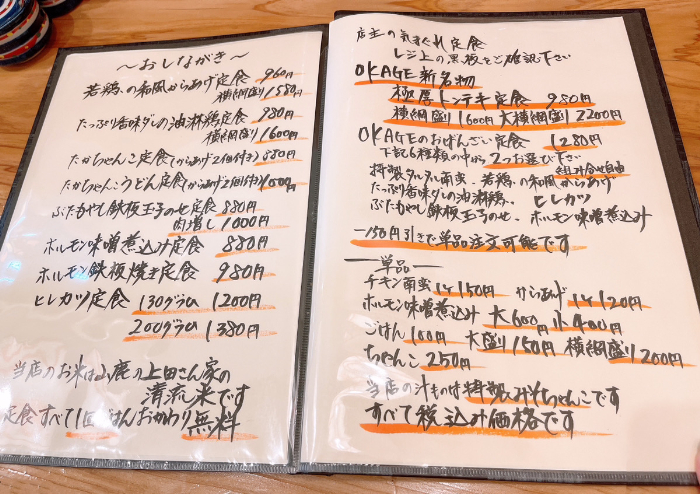 ～おしながき～
若鶏の和風からあげ定食 960円
横綱盛り1580円
たっぷり香味ダレの油淋鶏定食 980円
横綱盛り1600円
たかちゃんこ定食(からあげ2個付き) 880円
たかちゃんこうどん定食(からあげ2個付き) 1000円
ぶたもやし鉄板玉子のせ定食 880円
肉増し 1000円
ホルモン味噌煮込み定食 880円
ホルモン鉄板焼き定食 980円
ヒレカツ定食 130グラム 1200円
200グラム 1380円
当店のお米は山鹿の上田さん家の
清流米です
定食すべて1回ごはんおかわり無料
店主の気まぐれ定食
レジ上の黒板をご確認下さい
OKAGE新名物
極厚トンテキ定食 980円
横綱盛り1600円 大横綱盛り 2200円
OKAGEのおばんざい定食 1280円
下記6種類の中から2つお選び下さい
組み合せ自由
特製タルタル南蛮、若鶏の和風からあげ
たっぷり香味ダレの油淋鶏、ヒレカツ
ぶたもやし鉄板玉子のせ、ホルモン味噌煮込み
一150円引きで単品注文可能です
―単品―
チキン南蛮1ケ150円 からあげ1ケ120円
ホルモン味噌煮込み 大600円 小400円
ごはん100円 大盛り150円 横綱盛り200円
ちゃんこ 250円
当店の汁ものは特製みそちゃんこです
すべて税込み価格です